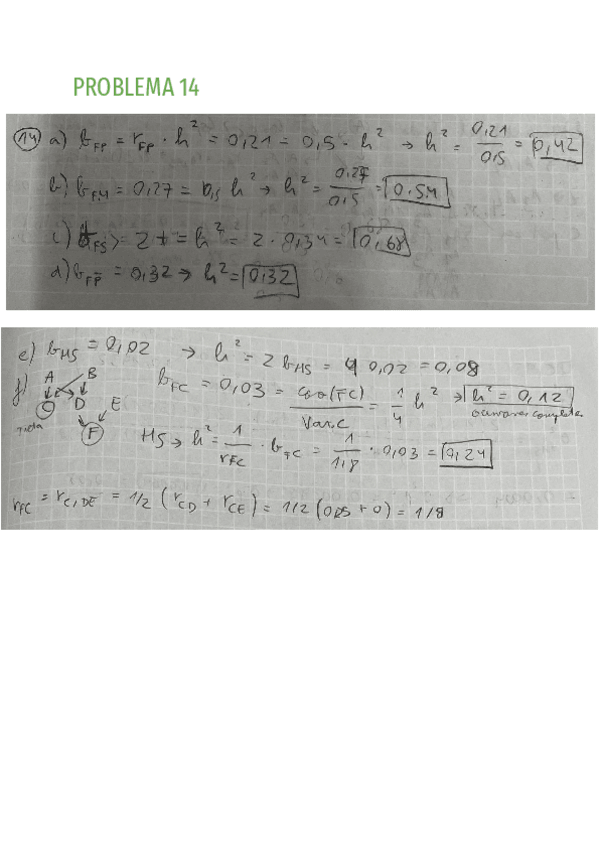 PROBLEMA 14
14 a) b_FP = r_FP · h² = 0,21 = 0,5 · h² → h² = 0,21/0,5 = 0,42
b) b_FM = 0,27 = 0,5 h² → h² = 0,27/0,5 = 0,54
c) t_FS = 2t = h² = 2 · 0,34 = 0,68
d) b_FP̄ = 0,32 → h² = 0,32
e) b_HS = 0,02 → h² = 2 b_HS = 4 0,02 = 0,08
f) A B b_FC = 0,03 = cov(FC)/Var C = 1/4 h² → h² = 0,12
C D E
F
HS → h² = 1/r_FC · b_FC = 1/1/8 · 0,03 = 0,24
r_FC = r_C,DE = 1/2 (r_CD + r_CE) = 1/2 (0,25 + 0) = 1/8